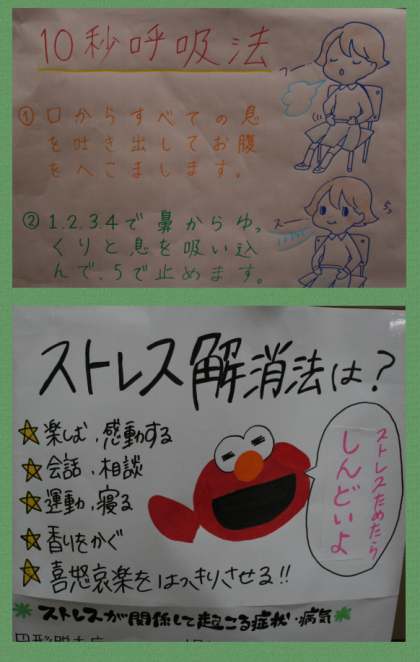 10秒呼吸法
① 口からすべての息
を吐き出してお腹
をへこまします。
フー
② 1.2.3.4で鼻からゆっ
くりと息を吸い込
んで、5で止めます。
スー
ストレス解消法は?
楽しむ、感動する
会話、相談
運動、寝る
香りをかぐ
喜怒哀楽をはっきりさせる!!
ストレスためたら
しんどいよ
ストレスが関係して起こる症状・病気